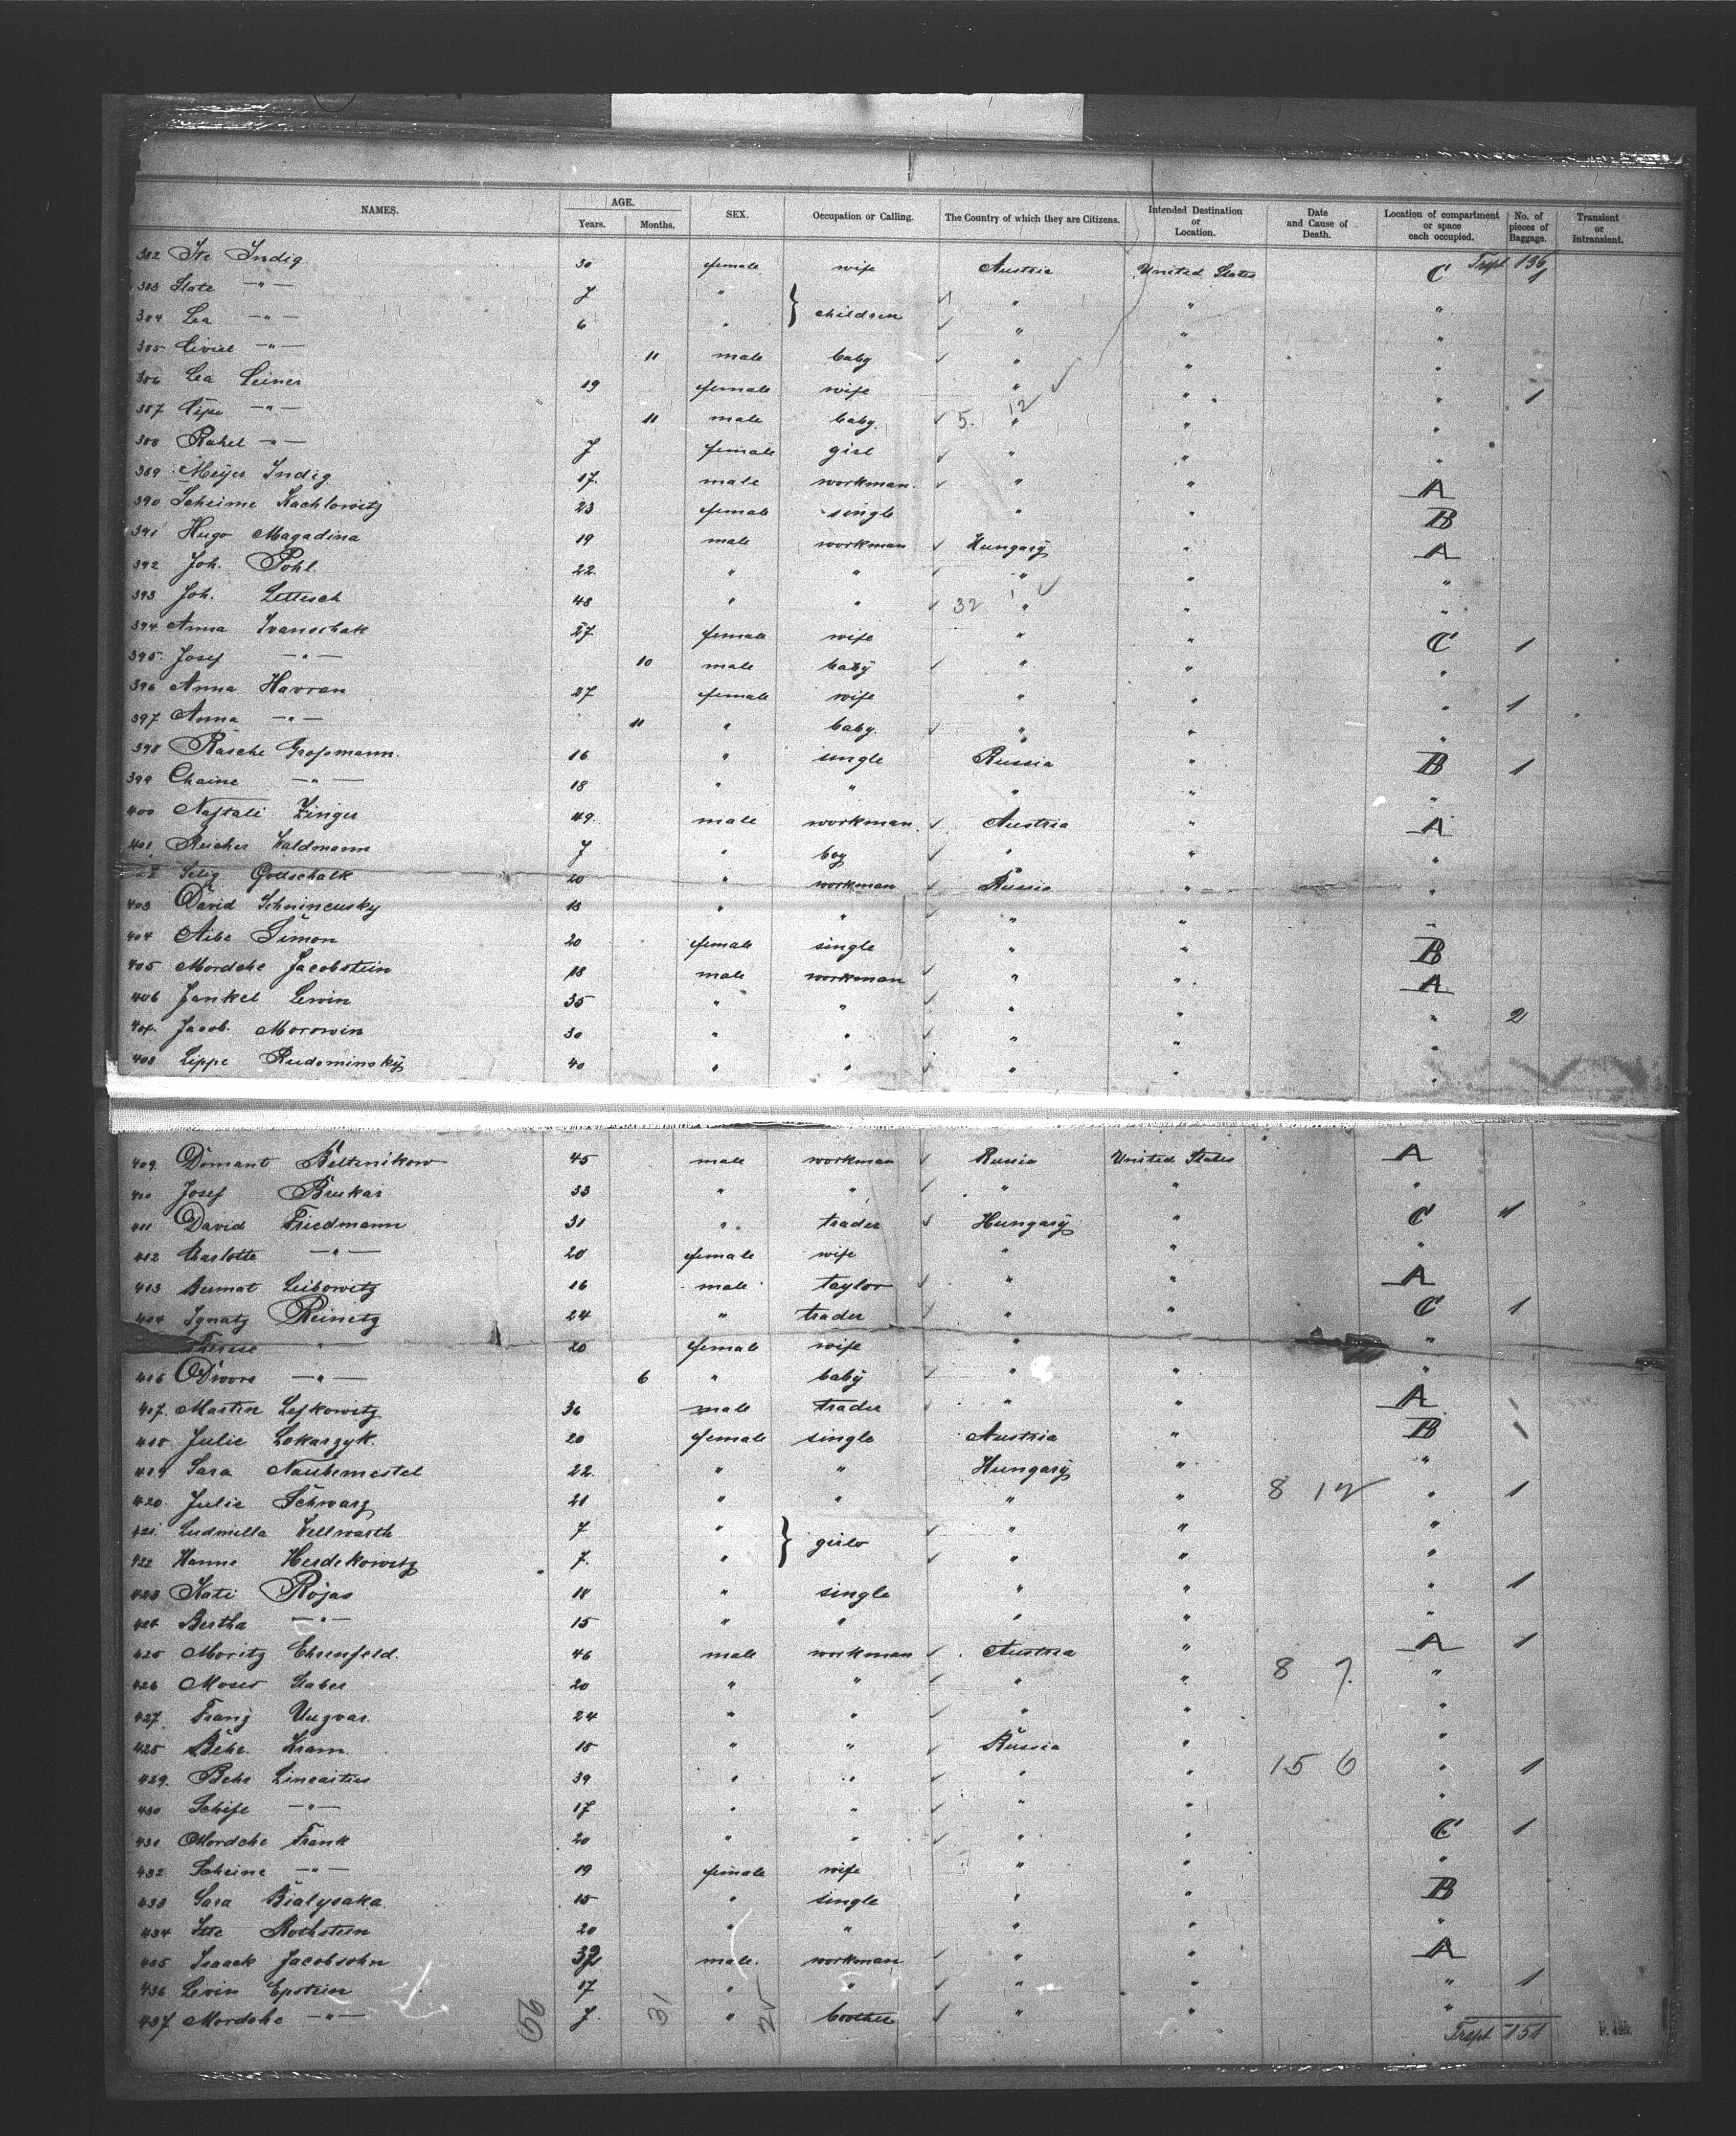 NAMES. AGE. Years. Months. SEX. Occupation or Calling. The Country of which they are Citizens. Intended Destination or Location. Date and Cause of Death. Location of compartment or space each occupied. No. of pieces of Baggage. Transient or Intransient.
Trspt 136
382 Ite Indig 30 female wife Austria United States C 1
383 Slate —"— 7 " } children ✓ " " "
384 Lea —"— 6 " ✓ " " "
385 —"— 11 male baby ✓ " " "
386 Lea Leiner 19 female wife " ✓ " " 1
387 —"— 11 male baby. ✓ 5. 12 " " "
388 Rahel —"— 7 female girl ✓ " " "
389 Meyer Indig 17. male workman. ✓ " " A
390 Scheime Kachlowitz 23 female single " " B
391 Hugo Magadina 19 male workman ✓ Hungary " A
392 Joh. Pohl. 22. " " ✓ " " "
393 Joh. Lettisch 48 " " ✓ 32 1 ✓ " " "
394 Anna Ivanschak 27 female wife " " C 1
395. Josef —"— 10 male baby ✓ " " "
396 Anna Havran 27 female wife " " " 1
397 Anna —"— 11 " baby. ✓ " " "
398 Rasche Großmann. 16 " single Russia " B 1
399 Chaine —"— 18 " " " " "
400 Naftali Zinger 49. male workman. ✓ Austria " A
401 Reicher Waldmann 7 " boy ✓ " " "
Selig Gottschalk 20 " workman ✓ Russia " "
403 David Schnineusky 18 " " ✓ " " "
404 Aibe Simon 20 female single " " B
405 Mordche Jacobstein 18 male workman ✓ " " A
406 Jankel Lewin 35 " " ✓ " " " 2
407. Jacob. Morowin 30 " " ✓ " " "
408 Lippe Rudominsky 40 " " ✓ " " "
409. Domant Beltznikow 45 male workman ✓ Russia United States A
410 Josef Brukar 33 " " ✓ " " "
411 David Friedmann 31 " trader ✓ Hungary " C 1
412 Charlotte —"— 20 female wife " " "
413 Bernat Leibowitz 16 male taylor ✓ " " A
414 Ignatz Reinitz 24 " trader ✓ " " C 1
Therese " 20 female wife " "
416 Dwore —"— 6 " baby ✓ " " "
417. Martin Lefkowitz 36 male trader " " A
418 Julie Lokarzyk. 20 female single Austria " B
419 Sara Naubemestel 22. " " Hungary " "
420. Julie Schwarz 21 " " " " 8 12 " 1
421. Ludmilla Wellwarth 7 " } girls ✓ " " "
422 Hanne Herdekowitz 7. " ✓ " " "
423 Kati Rojas 18 " single " " " 1
424 Bertha —"— 15 " " " " "
425 Moritz Ehrenfeld. 46 male workman ✓ Austria " A 1
426 Moses Gaber 20 " " ✓ " " 8 7. "
427 Franz Ungvar. 24 " " ✓ " " "
428 Behr. Kram. 18 " " ✓ Russia " "
429. Behr 39 " " ✓ " " 15 6 " 1
430 Schife —"— 17 " " ✓ " " "
431 Mordche Frank 20 " " ✓ " " C 1
432 Scheine —"— 19 female wife " " "
433 Sara Bialysaka 15 " single " " B
434 Itte Rothstein 20 " " " " "
435 Isaack Jacobsohn male. workman ✓ " " A
436 Levin Epstein 17 " " ✓ " " " 1
437 Mordche —"— 7. " brother ✓ " " "
31 25
Trspt 151